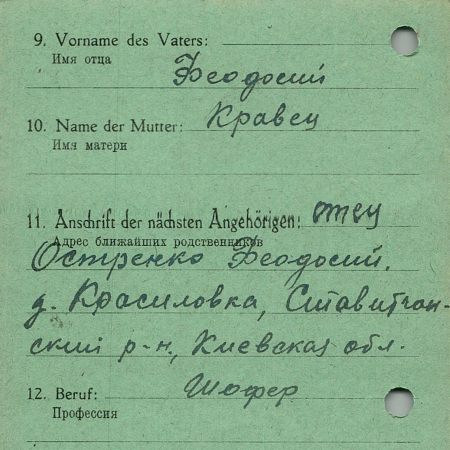 9. Vorname des Vaters:
Имя отца
Феодосий
10. Name der Mutter: Кравец
Имя матери
11. Anschrift der nächsten Angehörigen: отец
Адрес ближайших родственников
Остренко Феодосий.
д. Красиловка, Ставищан-
ский р-н, Киевская обл.
12. Beruf: Шофер
Профессия